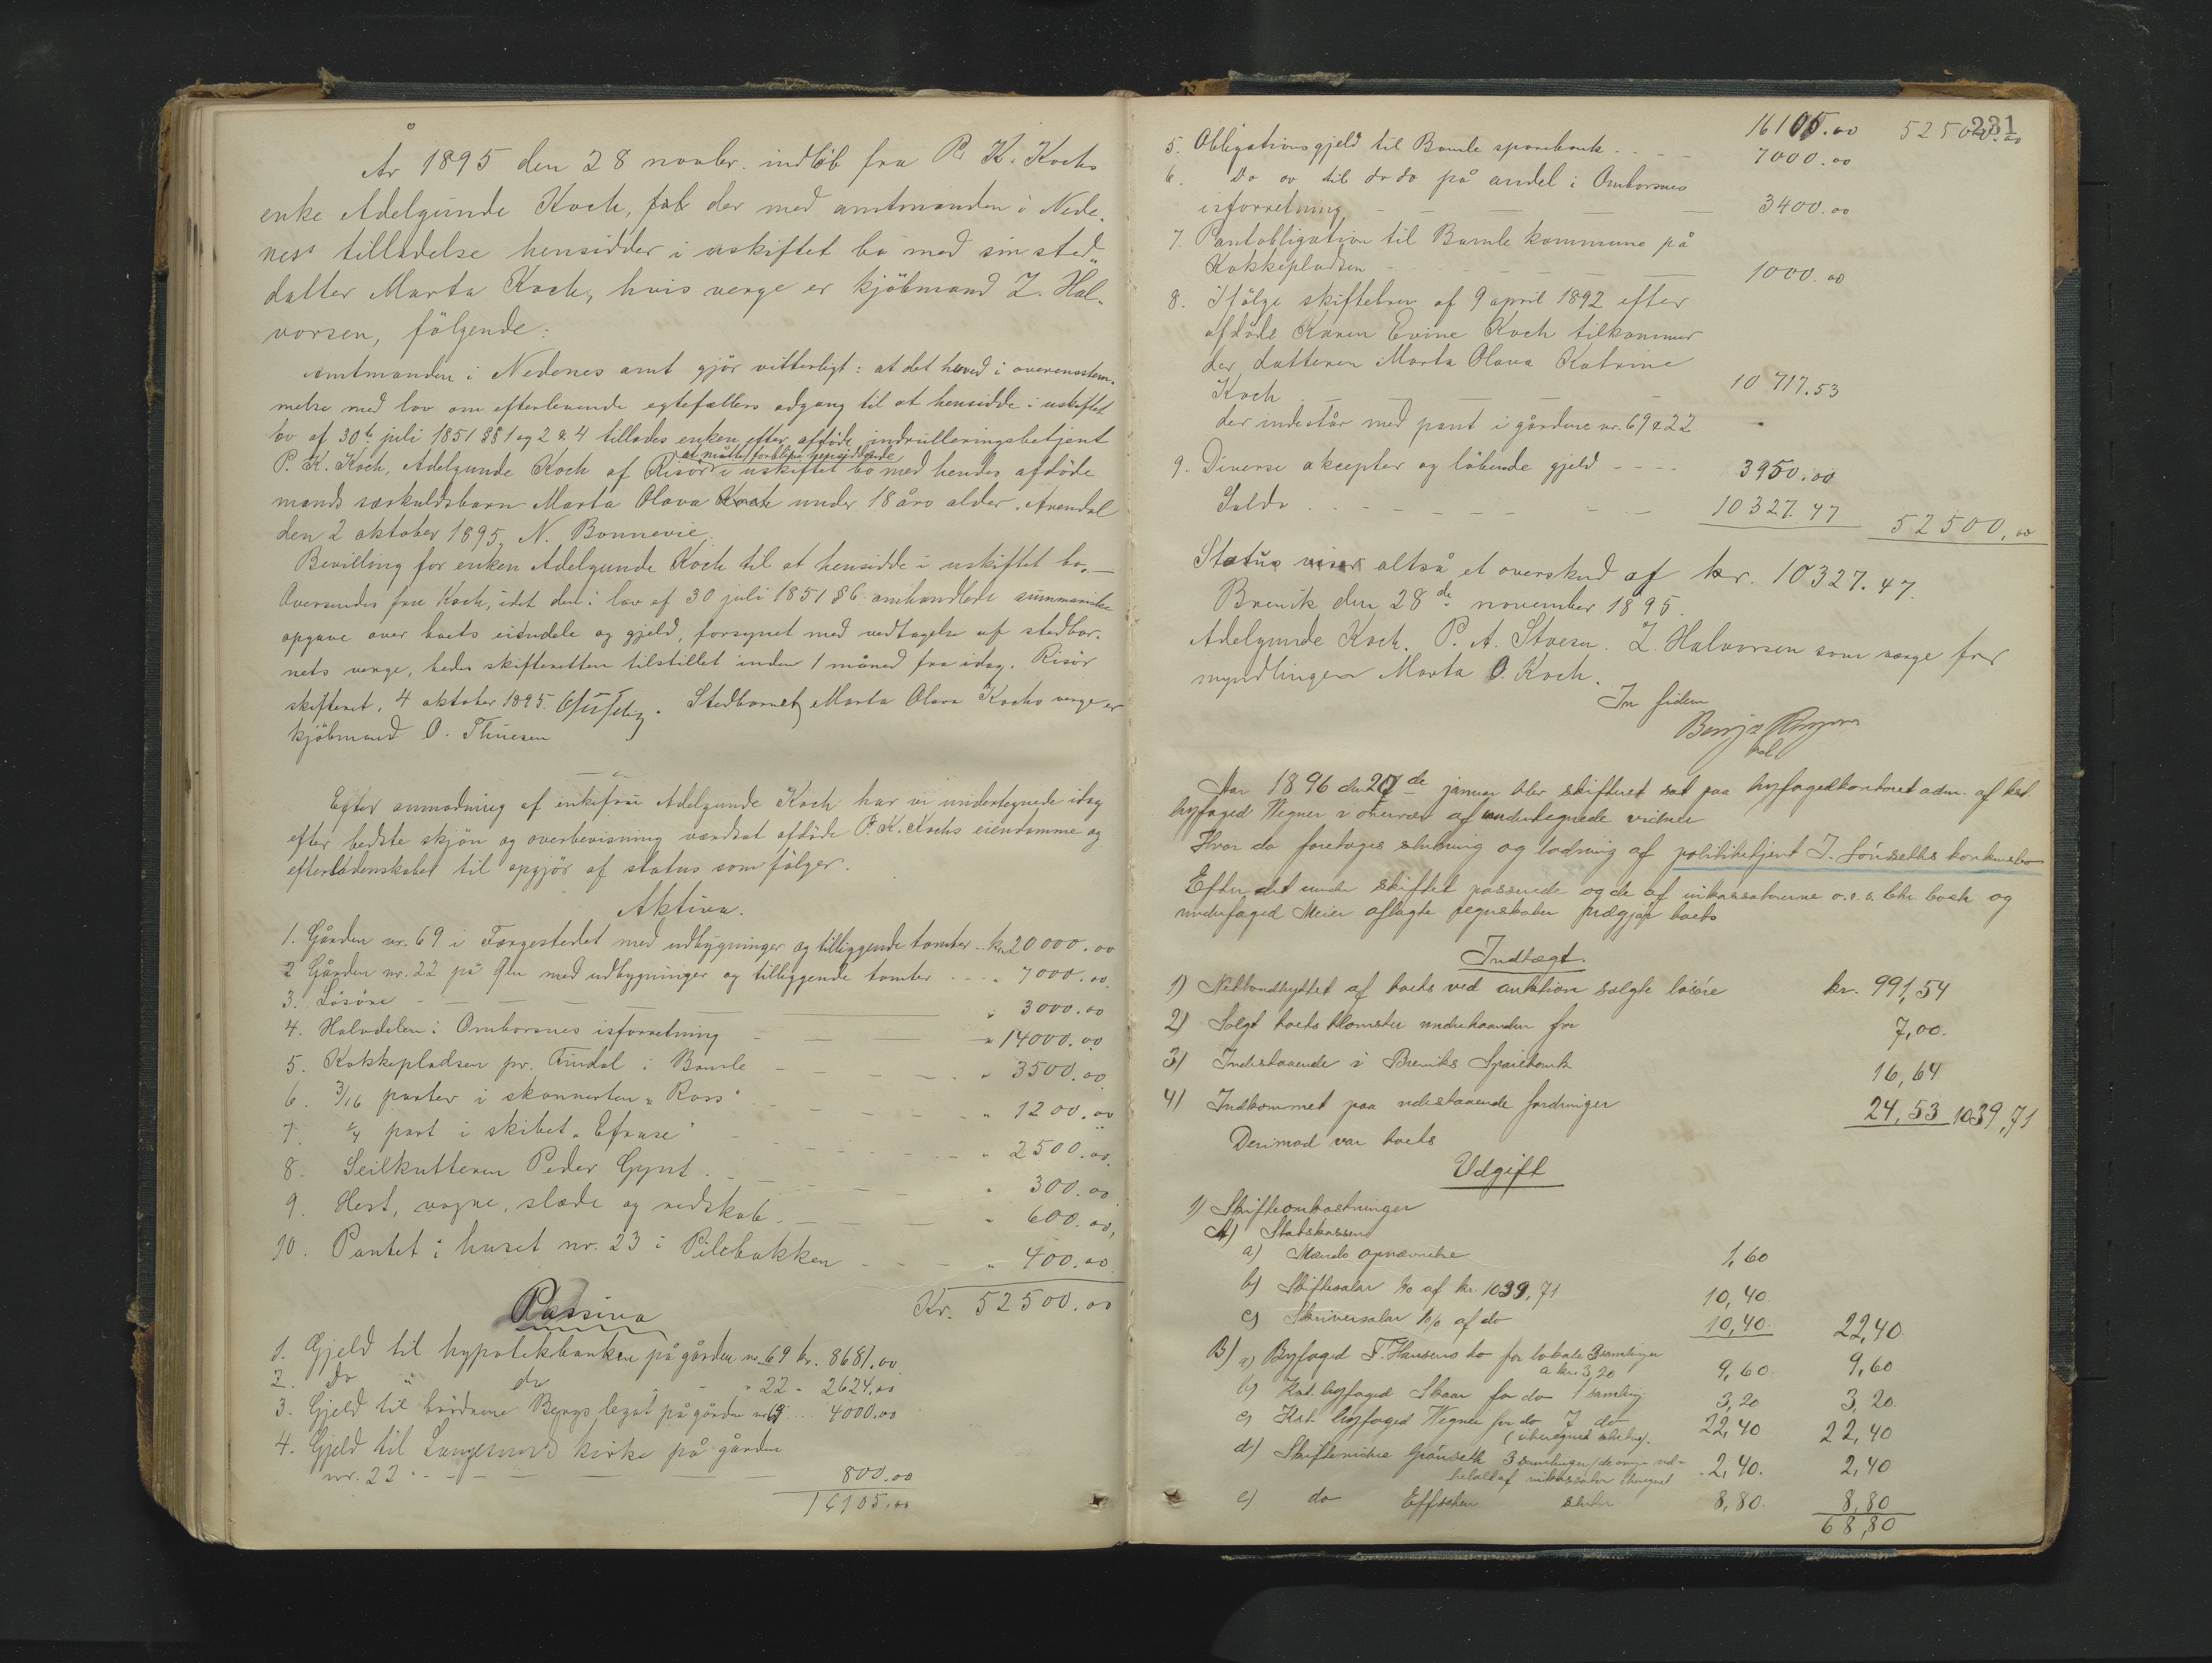 År 1895 den 28 novbr. indløb fra P. K. Kochs
enke Adelgunde Koch, født der med amtmanden i Nede-
nes tilladelse hensidder i uskiftet bo med sin sted-
datter Marta Koch, hvis verge er kjöbmand Z. Hal-
vorsen, fölgende:
Amtmanden i Nedenes amt gjör vitterligt: at det herved i overensstem-
melse med lov om efterlevende egtefællers adgang til at hensidde i uskiftet
bo af 30te juli 1851 §§ 1 og 2 & 4 tillades enken efter afdöde indrulleringsbetjent
P. K. Koch, Adelgunde Koch af Risör at måtte forblive hensiddende i uskiftet bo med hendes afdöde
mands særkuldsbarn Marta Olava Koch under 18 års alder. Arendal
den 2 oktober 1895, N. Bonnevie.
Bevilling for enken Adelgunde Koch til at hensidde i uskiftet bo.—
Oversendes frue Koch, idet den i lov af 30 juli 1851 § 6 omhandlede summariske
opgave over boets eiendele og gjeld, forsynet med vedtagelse af stedbar-
nets verge, bedes skifteretten tilstillet inden 1 måned fra idag. Risör
skifteret, 4 oktober 1895. Stedbarnet Marta Olava Kochs verge er
kjöbmand O. Thuesen
Efter anmodning af enkefrue Adelgunde Koch har vi undertegnede idag
efter bedste skjön og overbevisning værdsat afdöde P. K. Kochs eiendomme og
efterladenskaber til opgjör af status som fölger.
Aktiva.
1. Gården nr. 69 i Færgestedet med udbygninger og tilliggende tomter - kr 20000.00
2 Gården nr. 22 på Øen med udbygninger og tilliggende tomter - - - " 7000.00.
3. Lösöre - — — — " 3000.00
4. Halvdelen i Omborsnes isforretning - — — " 14000.00
5. Kokkepladsen pr. Findal i Bamle - — — - " 3500.00
6. 3/16 parter i skonnerten "Ross" - - - - " 1200.00
7. 1/4 part i skibet "Cfruse" - - - - " 2500.00.
8. Seilkutteren Peder Gynt. - - - - " 300.00
9. Hest, vogne, slæde og redskab - — — " 600.00,
10. Pantet i huset nr. 23 i Pilebakken - - - " 400.00
Kr. 52500.00
Passiva
1. Gjeld til hypotekbanken på gården nr. 69 kr. 8681.00
2. do " do - - " 22 - 2624.00
3. Gjeld til brödrene Bergs legat på gården nr 69 ... 4000.00
4. Gjeld til Langesunds kirke på gården
nr. 22 - - - — — — 800.00
16105.00
231
16105.00 52500.00
5. Obligationsgjeld til Bamle sparebank - - - 7000.00
6. do ov til do do på andel i Omborsnes
isforretning - — — — — 3400.00
7. Pantobligation til Bamle kommune på
Kokkepladsen - - - - — — 1000.00
8. Ifölge skiftebrev af 9 april 1892 efter
afdöde Karen Evine Koch tilkommer
der datteren Marta Olava Katrine
Koch - — — — — — 10 717.53
der indestår med pant i gårdene nr. 69 & 22
9. Diverse akcepter og löbende gjeld - - - - 3950.00
Saldo . . - - - - - - - 10327.47 52500,00
Status viser altså et overskud af kr. 10327.47.
Brevik den 28de november 1895.
Adelgunde Koch. P. A. Stoesen. Z. Halvorsen som verge for
myndlingen Marta O. Koch.
In fidem
Aar 1896 den 27de januar blev skifteret sat paa byfogedkontoret adm. af kst.
byfoged Wegner i overvær af undertegnede vidner
Hvor da foretoges slutning og lodning af politibetjent J. Lönseths konkursbo
Efter det under skiftet passerede og de af inkassatorerne o.r.s. Chr. Cock og
underfoged Meier aflagte regnskaber udgjör boets
Indtægt.
1) Nettoudbyttet af boets ved auktion solgte lösöre kr. 991,54
2) Solgt boets blomster underhaanden for 7,00.
3) Indestaaende i Breviks Sparebank 16,64
4) Indkommet paa udestaaende fordringer 24,53 1039,71
Derimod var boets
Udgift
1) Skifteomkostninger
A) Statskassen
a) Mænds opnævnelse 1,60
b) Skiftesalær 1% af kr. 1039,71 10,40.
c) Skriversalær 1% af do 10,40. 22,40.
B) a) Byfoged F. Hansens bo for lokale 3 samlinger
a kr. 3,20 9,60. 9,60.
b) Kst. byfoged Skaar for do 1 samling 3,20 3,20.
c) Kst. byfoged Wegner for do 7 do
(iberegnet slutning). 22,40 22,40
d) Skiftevidne Grönseth 3 samlinger (de övrige ved-
betalt af inkassator iberegnet 2,40. 2,40
e) do Effschen slutn. 8,80. 8,80
68,80